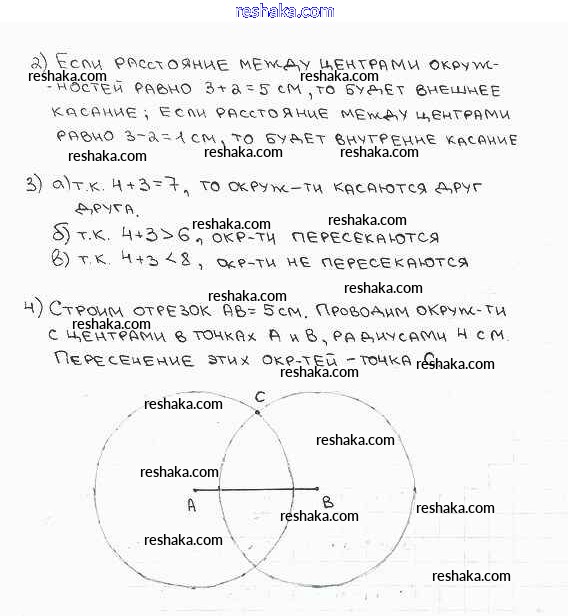 reshaka.com
2) Если расстояние между центрами окруж-
reshaka.com reshaka.com
-ностей равно 3+2=5 см, то будет внешнее
касание; если расстояние между центрами
равно 3-2=1 см, то будет внутренне касание
reshaka.com reshaka.com reshaka.com
3) а) т.к. 4+3=7, то окруж-ти касаются друг
друга.
reshaka.com reshaka.com
б) т.к. 4+3>6, окр-ти пересекаются
в) т.к. 4+3<8, окр-ти не пересекаются
reshaka.com
4) Строим отрезок AB=5см. Проводим окруж-ти
reshaka.com
с центрами в точках A и B, радиусами 4 см.
reshaka.com
Пересечение этих окр-тей - точка C
reshaka.com
C
reshaka.com
reshaka.com
reshaka.com
A B
reshaka.com reshaka.com
reshaka.com
reshaka.com